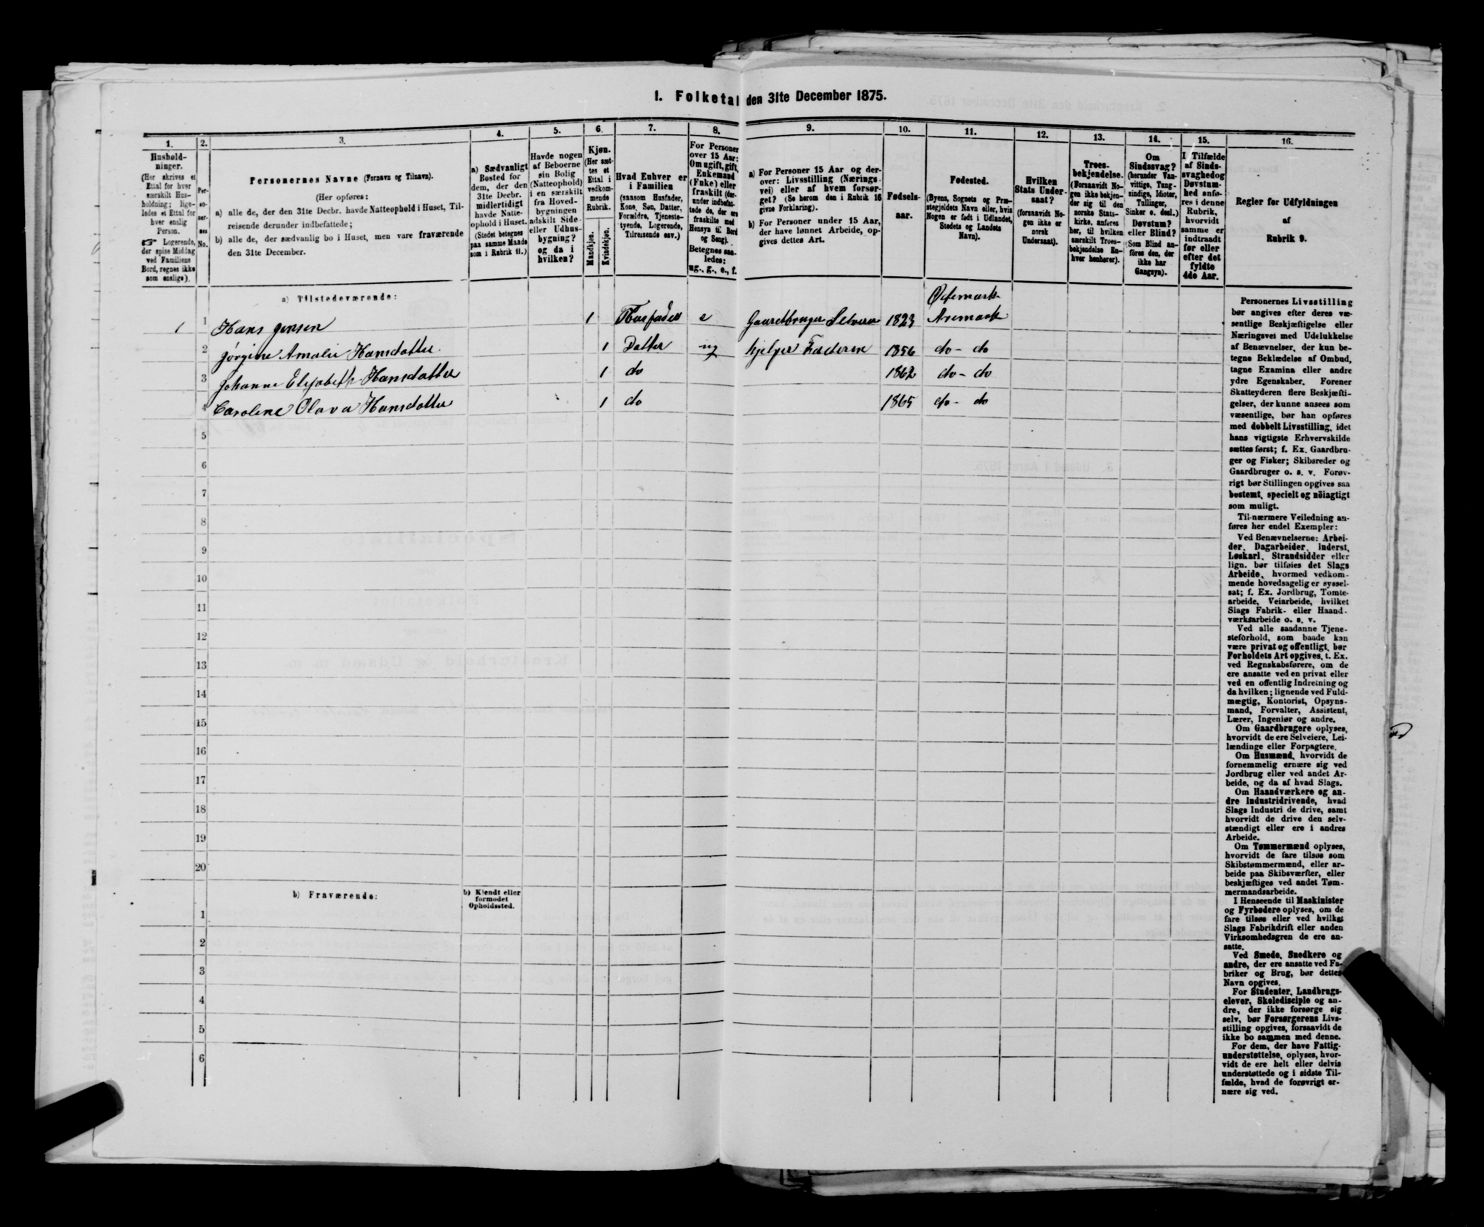 1. Folketal den 31te December 1875.
1. 2. 3. 4. 5. 6. 7. 8. 9. 10. 11. 12. 13. 14. 15. 16.
Hushold-
ninger.
(Her skrives et
Ettal for hver
særskilt Hus-
holdning; lige-
ledes et Ettal for
hver enslig
Person.
☞ Logerende,
der spise Middag
ved Familiens
Bord, regnes ikke
som enslige).
Per-
so-
ner-
nes
No.
Personernes Navne (Fornavn og Tilnavn).
(Her opføres:
a) alle de, der den 31te Decbr. havde Natteophold i Huset, Til-
reisende derunder indbefattede;
b) alle de, der sædvanlig bo i Huset, men vare fraværende
den 31te December.
a) Sædvanligt
Bosted for
dem, der den
31te Decbr.
midlertidigt
havde Natte-
ophold i Huset.
(Stedet betegnes
paa samme Maade
som i Rubrik 11.)
Havde nogen
af Beboerne
sin Bolig
(Natteophold)
i en særskilt
fra Hoved-
bygningen
adskilt Side-
eller Udhus-
bygning?
og da i
hvilken?
Kjøn.
(Her sæt-
tes et
Ettal i
vedkom-
mende
Rubrik.
Mandkjøn.
Kvindekjøn.
Hvad Enhver er
i Familien
(saasom Husfader,
Kone, Søn, Datter,
Forældre, Tjeneste-
tyende, Logerende,
Tilreisende osv.)
For Personer
over 15 Aar:
Om ugift, gift,
Enkemand
(Enke) eller
fraskilt (der-
under indbefat-
tede de, der ere
fraskilte med
Hensyn til Bord
og Seng).
Betegnes saa-
ledes:
ug., g., e., f.
a) For Personer 15 Aar og der-
over: Livsstilling (Nærings-
vei) eller af hvem forsør-
get? (Se herom den i Rubrik 16
givne Forklaring).
b) For Personer under 15 Aar,
der have lønnet Arbeide, op-
gives dettes Art.
Fødsels-
aar.
Fødested.
(Byens, Sognets og Præ-
stegjeldets Navn eller, hvis
Nogen er født i Udlandet,
Stedets og Landets
Navn).
Hvilken
Stats Under-
saat?
(forsaavidt No-
gen ikke er
norsk
Undersaat).
Troes-
bekjendelse.
(Forsaavidt No-
gen ikke bekjen-
der sig til den
norske Stats-
kirke, anføres
her, til hvilken
særskilt Troes-
bekjendelse En-
hver henhører).
Om
Sindssvag?
(herunder Van-
vittige, Tung-
sindige, Idioter,
Tullinger,
Sinker o. desl.)
Døvstum?
eller Blind?
(Som Blind an-
føres den, der
ikke har
Gangsyn).
I Tilfælde
af Sinds-
svaghed og
Døvstum-
hed anfø-
res i denne
Rubrik,
hvorvidt
samme er
indtraadt
før eller
efter det
fyldte
4de Aar.
Regler for Udfyldningen
af
Rubrik 9.
a) Tilstedeværende:
Øremark
1 1 Hans Jensen 1 Husfader e Gaardbruger Selveier 1823 Aremark
2 Jørgine Amalie Hansdatter 1 Datter ug hjelper Faderen 1856 do - do
3 Johanne Elisabeth Hansdatter 1 do 1862 do - do
4 Caroline Olava Hansdatter 1 do 1865 do - do
5
6
7
8
9
10
11
12
13
14
15
16
17
18
19
20
b) Fraværende:
b) Kjendt eller
formodet
Opholdssted.
1
2
3
4
5
6
Personernes Livsstilling
bør angives efter deres væ-
sentlige Beskjæftigelse eller
Næringsvei med Udelukkelse
af Benævnelser, der kun be-
tegne Beklædelse af Ombud,
tagne Examina eller andre
ydre Egenskaber. Forener
Skatteyderen flere Beskjæfti-
gelser, der kunne ansees som
væsentlige, bør han opføres
med dobbelt Livsstilling, idet
hans vigtigste Erhvervskilde
sættes først; f. Ex. Gaardbru-
ger og Fisker; Skibsreder og
Gaardbruger o. s. v. Forøv-
rigt bør Stillingen opgives saa
bestemt, specielt og nøiagtigt
som muligt.
Til nærmere Veiledning an-
føres her endel Exempler:
Ved Benævnelserne: Arbei-
der, Dagarbeider, Inderst,
Løskarl, Strandsidder eller
lign. bør tilføies det Slags
Arbeide, hvormed vedkom-
mende hovedsagelig er syssel-
sat; f. Ex. Jordbrug, Tomte-
arbeide, Veiarbeide, hvilket
Slags Fabrik- eller Haand-
værksarbeide o. s. v.
Ved alle saadanne Tjene-
steforhold, som baade kan
være privat og offentligt, bør
Forholdets Art opgives, t. Ex.
ved Regnskabsførere, om de
ere ansatte ved en privat eller
ved en offentlig Indretning og
da hvilken; lignende ved Fuld-
mægtig, Kontorist, Opsyns-
mand, Forvalter, Assistent,
Lærer, Ingeniør og andre.
Om Gaardbrugere oplyses,
hvorvidt de ere Selveiere, Lei-
lændinge eller Forpagtere.
Om Husmænd, hvorvidt de
fornemmelig ernære sig ved
Jordbrug eller ved andet Ar-
beide, og da af hvad Slags.
Om Haandværkere og an-
dre Industridrivende, hvad
Slags Industri de drive, samt
hvorvidt de drive den selv-
stændigt eller ere i andres
Arbeide.
Om Tømmermænd oplyses,
hvorvidt de fare tilsøs som
Skibstømmermænd, eller ar-
beide paa Skibsværfter, eller
beskjæftiges ved andet Tøm-
mermandsarbeide.
I Henseende til Maskinister
og Fyrbødere oplyses, om de
fare tilsøs eller ved hvilket
Slags Fabrikdrift eller anden
Virksomhedsgren de ere an-
satte.
Ved Smede, Snedkere og
andre, der ere ansatte ved Fa-
briker og Brug, bør dettes
Navn opgives.
For Studenter, Landbrugs-
elever, Skoledisciple og an-
dre, der ikke forsørge sig
selv, bør Forsørgerens Livs-
stilling opgives, forsaavidt de
ikke bo sammen med denne.
For dem, der have Fattig-
understøttelse, oplyses, hvor-
vidt de ere helt eller delvis
understøttede og i sidste Til-
fælde, hvad de forøvrigt er-
nære sig ved.